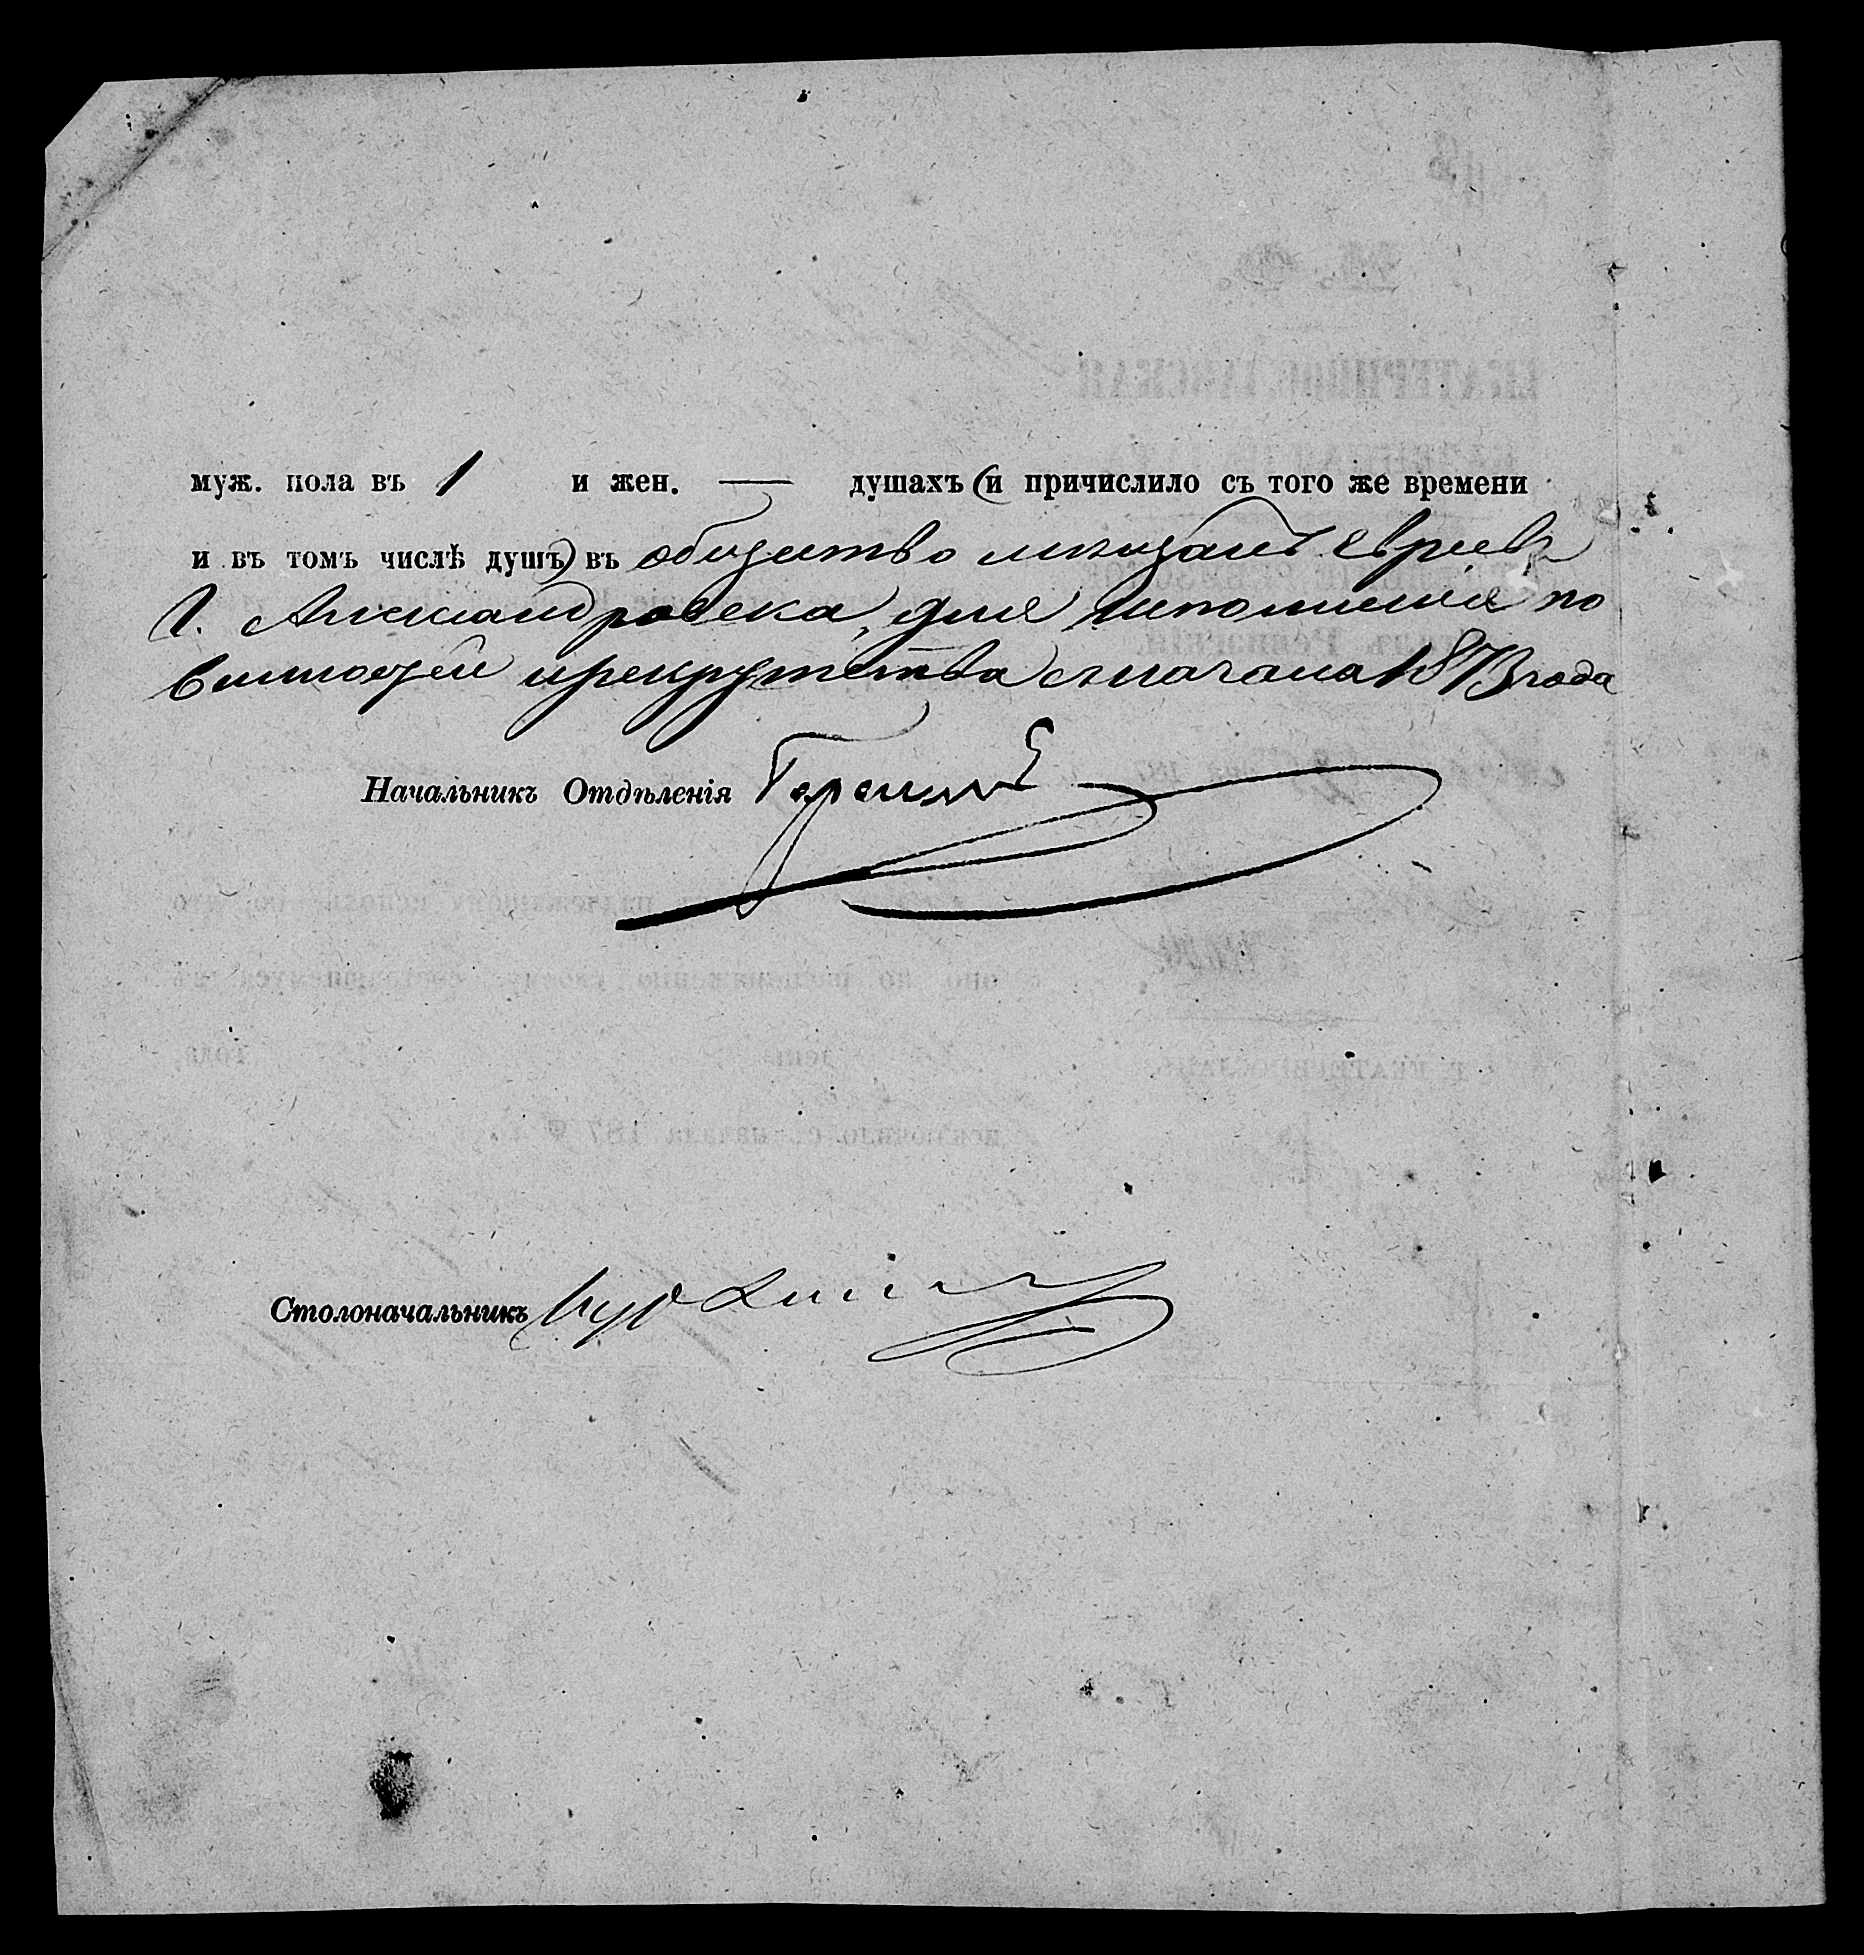 муж. пола въ 1 и жен. — душахъ (и причислило съ того же времени
и въ томъ числѣ душъ) въ общество мѣщанъ евреевъ
г. Александровска, для исполненія по
винностей и рекрутства сначала 1873 года
Начальникъ Отдѣленія
Столоначальникъ